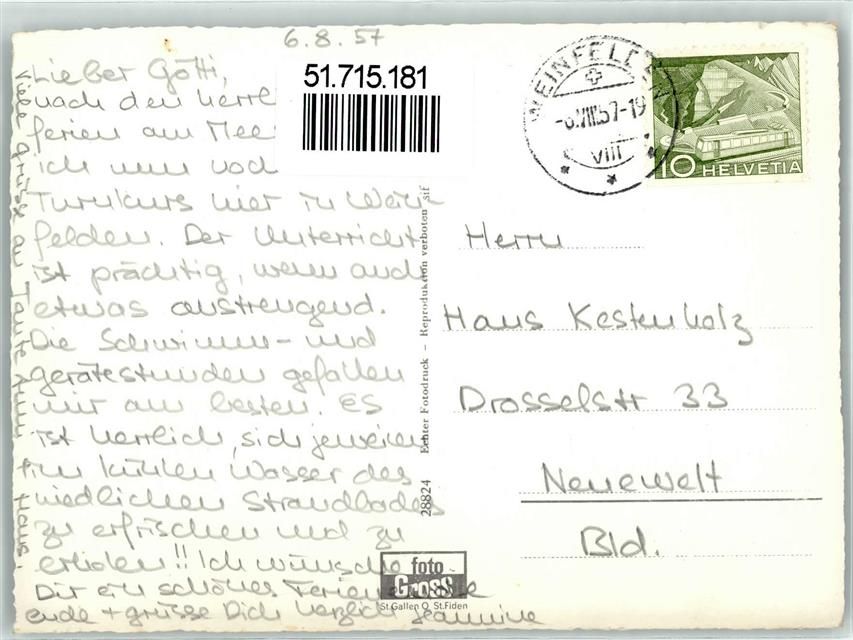 6.8.57
Lieber Götti,
nach den herrl
ferien am Mee
ich nun noch
Turnkurs hier in Wein-
felden. Der Unterricht
ist prächtig, wenn auch
etwas anstrengend.
Die Schwimm- und
gerätestunden gefallen
mir am besten. Es
ist herrlich, sich jeweilen
im kühlen Wasser des
niedlichen Strandbades
zu erfrischen und zu
erholen!! Ich wünsche
Dir ein schönes Ferien
ende + grüsse Dich herzlich Jeannine
Viele Grüsse an Tante + Hans.
51.715.181
WEINFELDEN
-6.VIII.57-19
VIII
10 HELVETIA
Herrn
Hans Kestenholz
Drosselstr 33
Neuewelt
Bld.
28824 Echter Fotodruck – Reproduktion verboten sif
foto
Gross
St.Gallen O St.Fiden